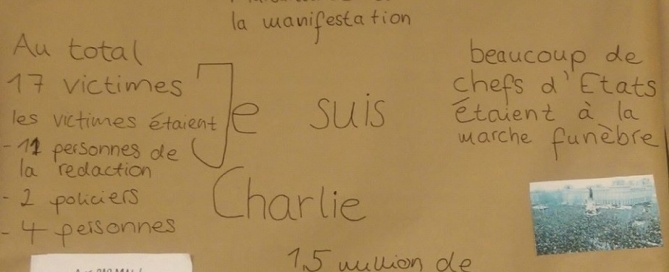 la manifestation
Au total
17 victimes
les victimes étaient
- 11 personnes de
la redaction
- 2 policiers
- 4 personnes
Je suis
Charlie
beaucoup de
chefs d'Etats
étaient à la
marche funèbre
1,5 million de